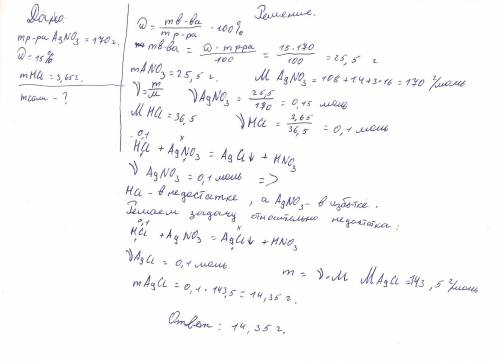 Дано:
mр-ра AgNO₃ = 170 г.
ω = 15%
mHCl = 3,65 г.
mсоли - ?
Решение.
ω = mв-ва / mр-ра · 100%
mв-ва = ω · mр-ра / 100 = 15 · 170 / 100 = 25,5 г
mANO₃ = 25,5 г. M AgNO₃ = 108 + 14 + 3·16 = 170 г/моль
ν = m/M ν AgNO₃ = 25,5 / 170 = 0,15 моль
M HCl = 36,5 ν HCl = 3,65 / 36,5 = 0,1 моль
0,1 x
HCl + AgNO₃ = AgCl↓ + HNO₃
1 1
ν AgNO₃ = 0,1 моль =>
HCl - в недостатке, а AgNO₃ - в избытке.
Решаем задачу относительно недостатка:
0,1 x
HCl + AgNO₃ = AgCl↓ + HNO₃
1 1
ν AgCl = 0,1 моль m = ν · M MAgCl = 143,5 г/моль
mAgCl = 0,1 · 143,5 = 14,35 г.
Ответ: 14,35 г.